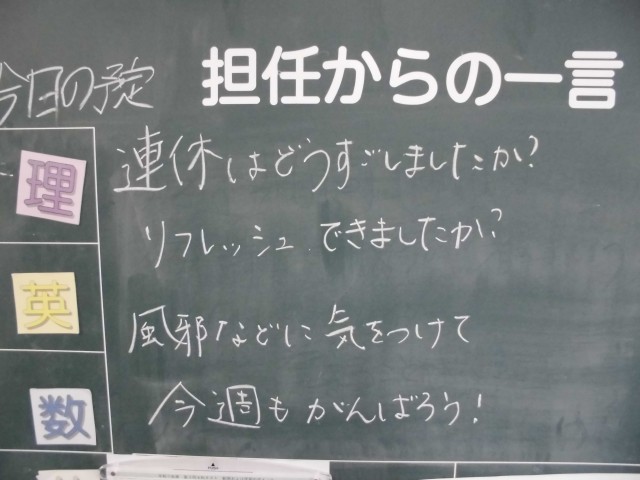 今日の予定
担任からの一言
理
英
数
連休はどうすごしましたか?
リフレッシュ、できましたか?
風邪などに気をつけて
今週もがんばろう!